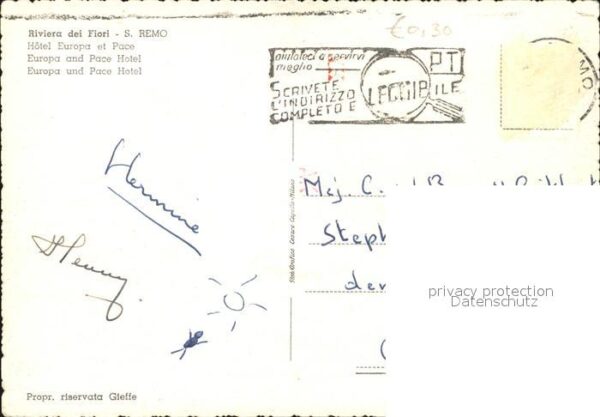 Riviera dei Fiori - S. REMO
Hôtel Europa et Pace
Europa and Pace Hotel
Europa und Pace Hotel
€0,30
aiutateci a servirvi
meglio
PT
SCRIVETE
L'INDIRIZZO
COMPLETO E LEGGIBILE
Hermine
Henny.
Mej.
Steph
den
privacy protection
Datenschutz
Propr. riservata Gieffe